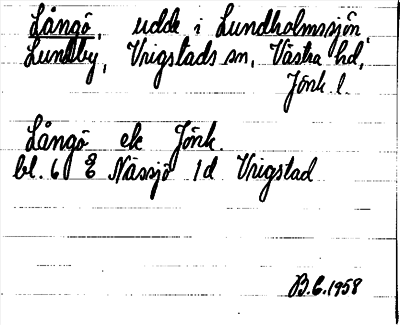 Långö, udde i Lundholmssjön,
Lundby, Vrigstads sn, Västra hd,
Jönk. l.
Långö ek Jönk.
bl. 6 E Nässjö 1d Vrigstad
B.E. 1958